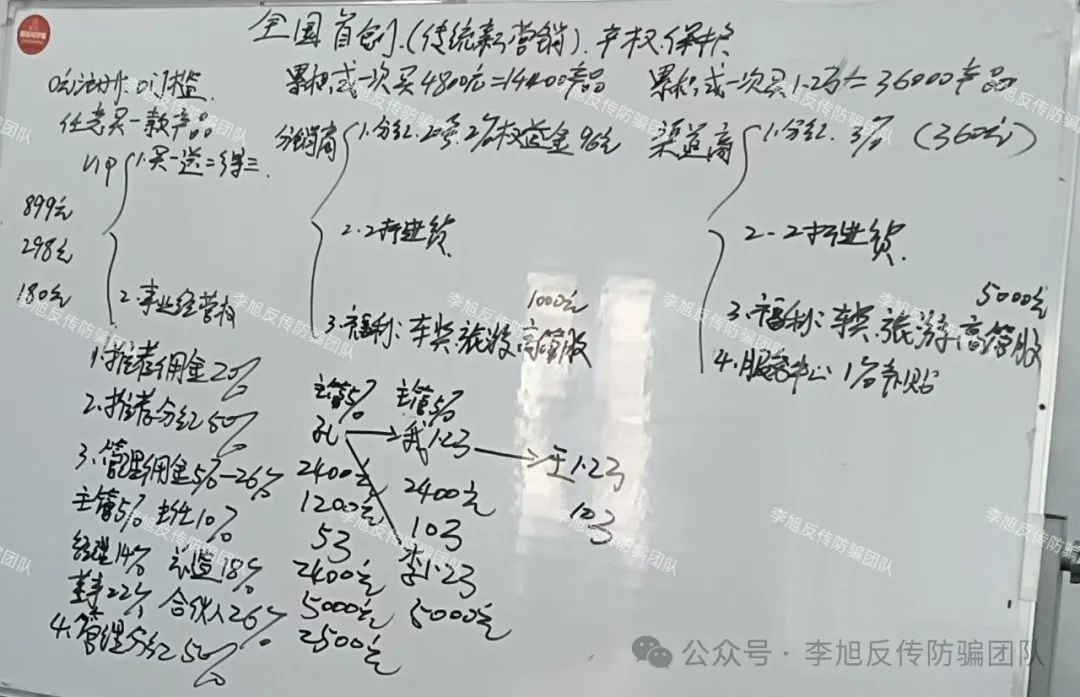 全国首创.(传统新营销).产权.保护
0门槛
任意买一款产品
VIP
1.买一送二得三.
899元
298元
180元
2.事业经营权
1.推荐佣金20%
2.推荐分红50%
3.管理佣金5%-26%
主管5% 主任10%
经理14% 总监18%
董事22% 合伙人26%
4.管理分红50%
累积或一次买4800元=14400产品
分销商
1.分红.2%权益金96元
2.2折进货
1000元
3.福利:车奖.旅游.高管股
主管5% 主管5%
孔 我1.2万 王1.2万
2400元 2400元 10万
1200元 10万
5万 李1.2万
2400元
5000元 5000元
2500元
累积或一次买1.2万=36000产品
渠道商
1.分红.3% (360元)
2.2折进货.
5000元
3.福利:车奖.旅游.高管股
4.服务中心1%补贴
李旭反传防骗团队
公众号·李旭反传防骗团队